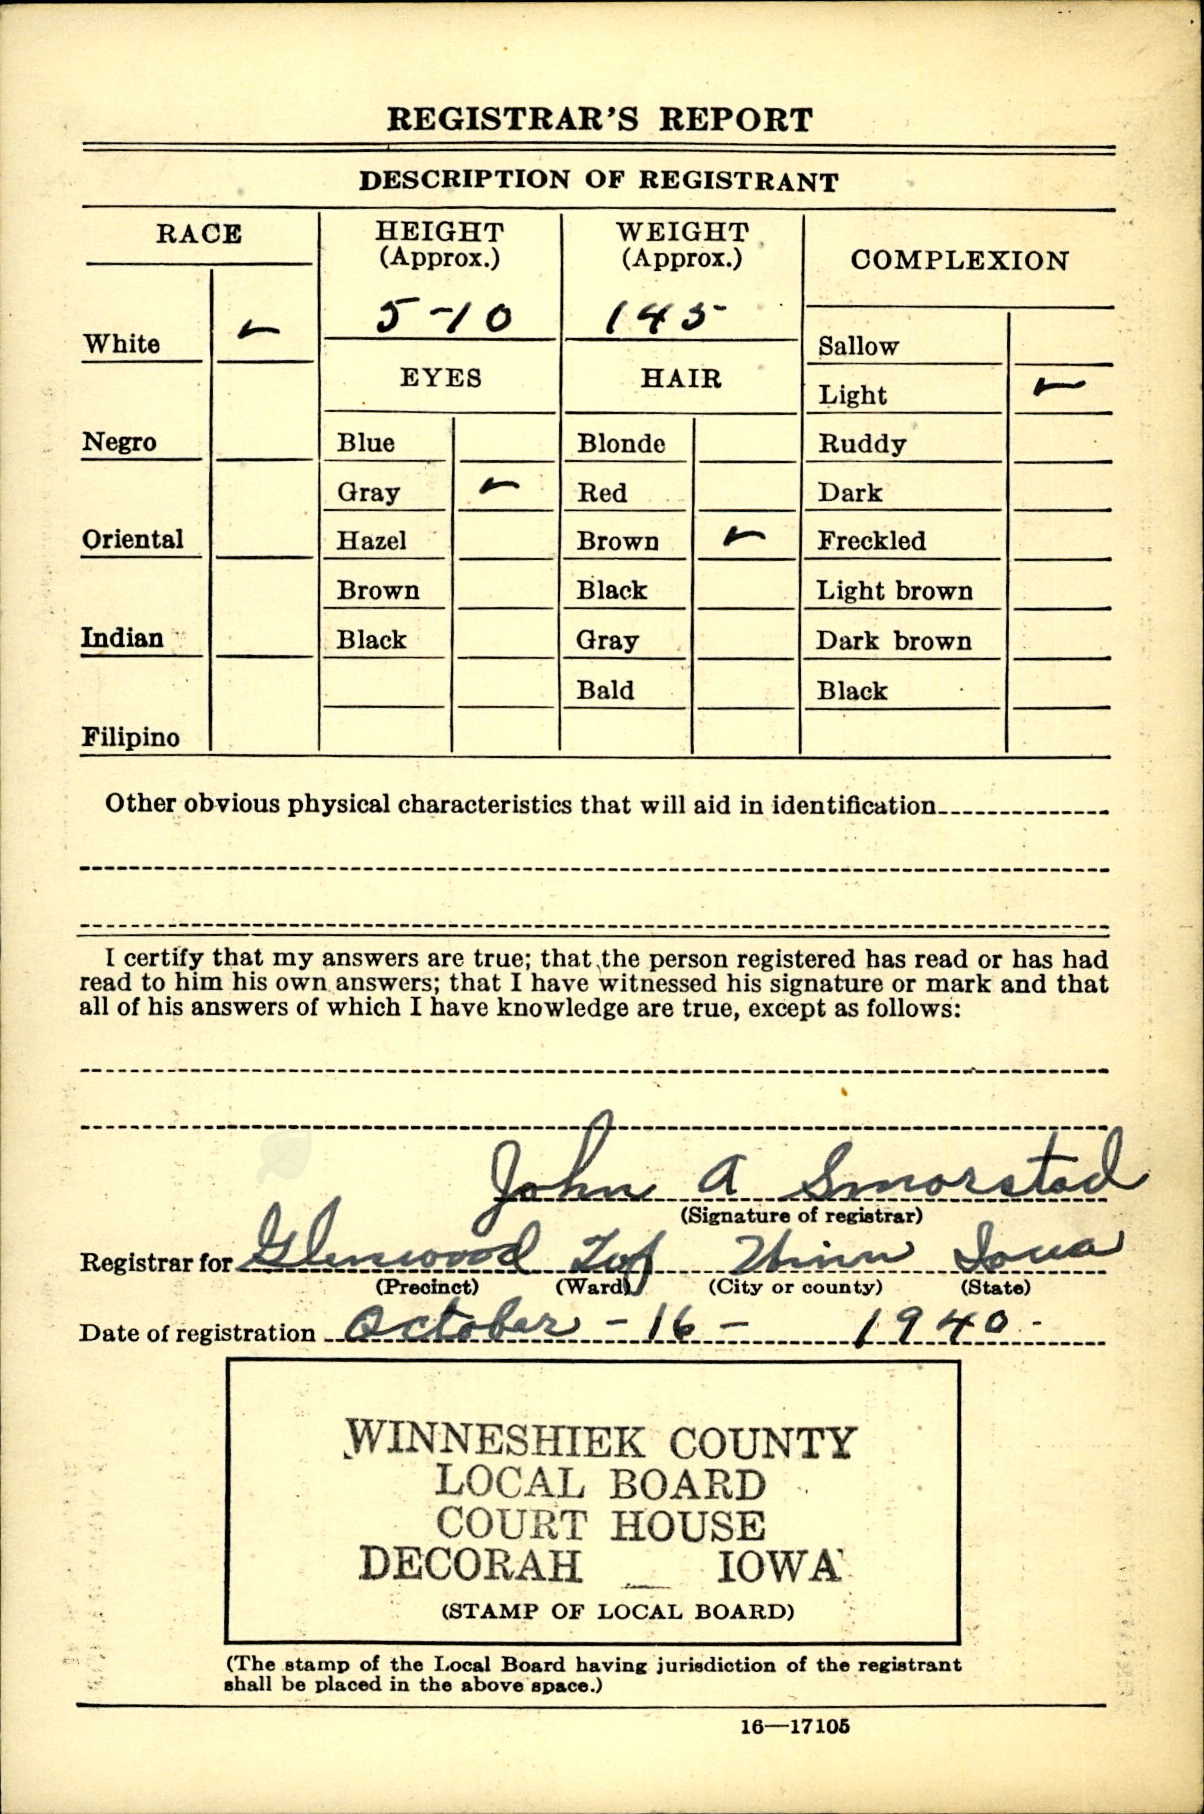 REGISTRAR'S REPORT
DESCRIPTION OF REGISTRANT
RACE
White ✓
Negro
Oriental
Indian
Filipino
HEIGHT
(Approx.)
5-10
EYES
Blue
Gray ✓
Hazel
Brown
Black
WEIGHT
(Approx.)
145
HAIR
Blonde
Red
Brown ✓
Black
Gray
Bald
COMPLEXION
Sallow
Light ✓
Ruddy
Dark
Freckled
Light brown
Dark brown
Black
Other obvious physical characteristics that will aid in identification
I certify that my answers are true; that the person registered has read or has had
read to him his own answers; that I have witnessed his signature or mark and that
all of his answers of which I have knowledge are true, except as follows:
John A Smorstad
(Signature of registrar)
Registrar for Glenwood Twp Winn Iowa
(Precinct) (Ward) (City or county) (State)
Date of registration October - 16 - 1940 -
WINNESHIEK COUNTY
LOCAL BOARD
COURT HOUSE
DECORAH IOWA
(STAMP OF LOCAL BOARD)
(The stamp of the Local Board having jurisdiction of the registrant
shall be placed in the above space.)
16—17105